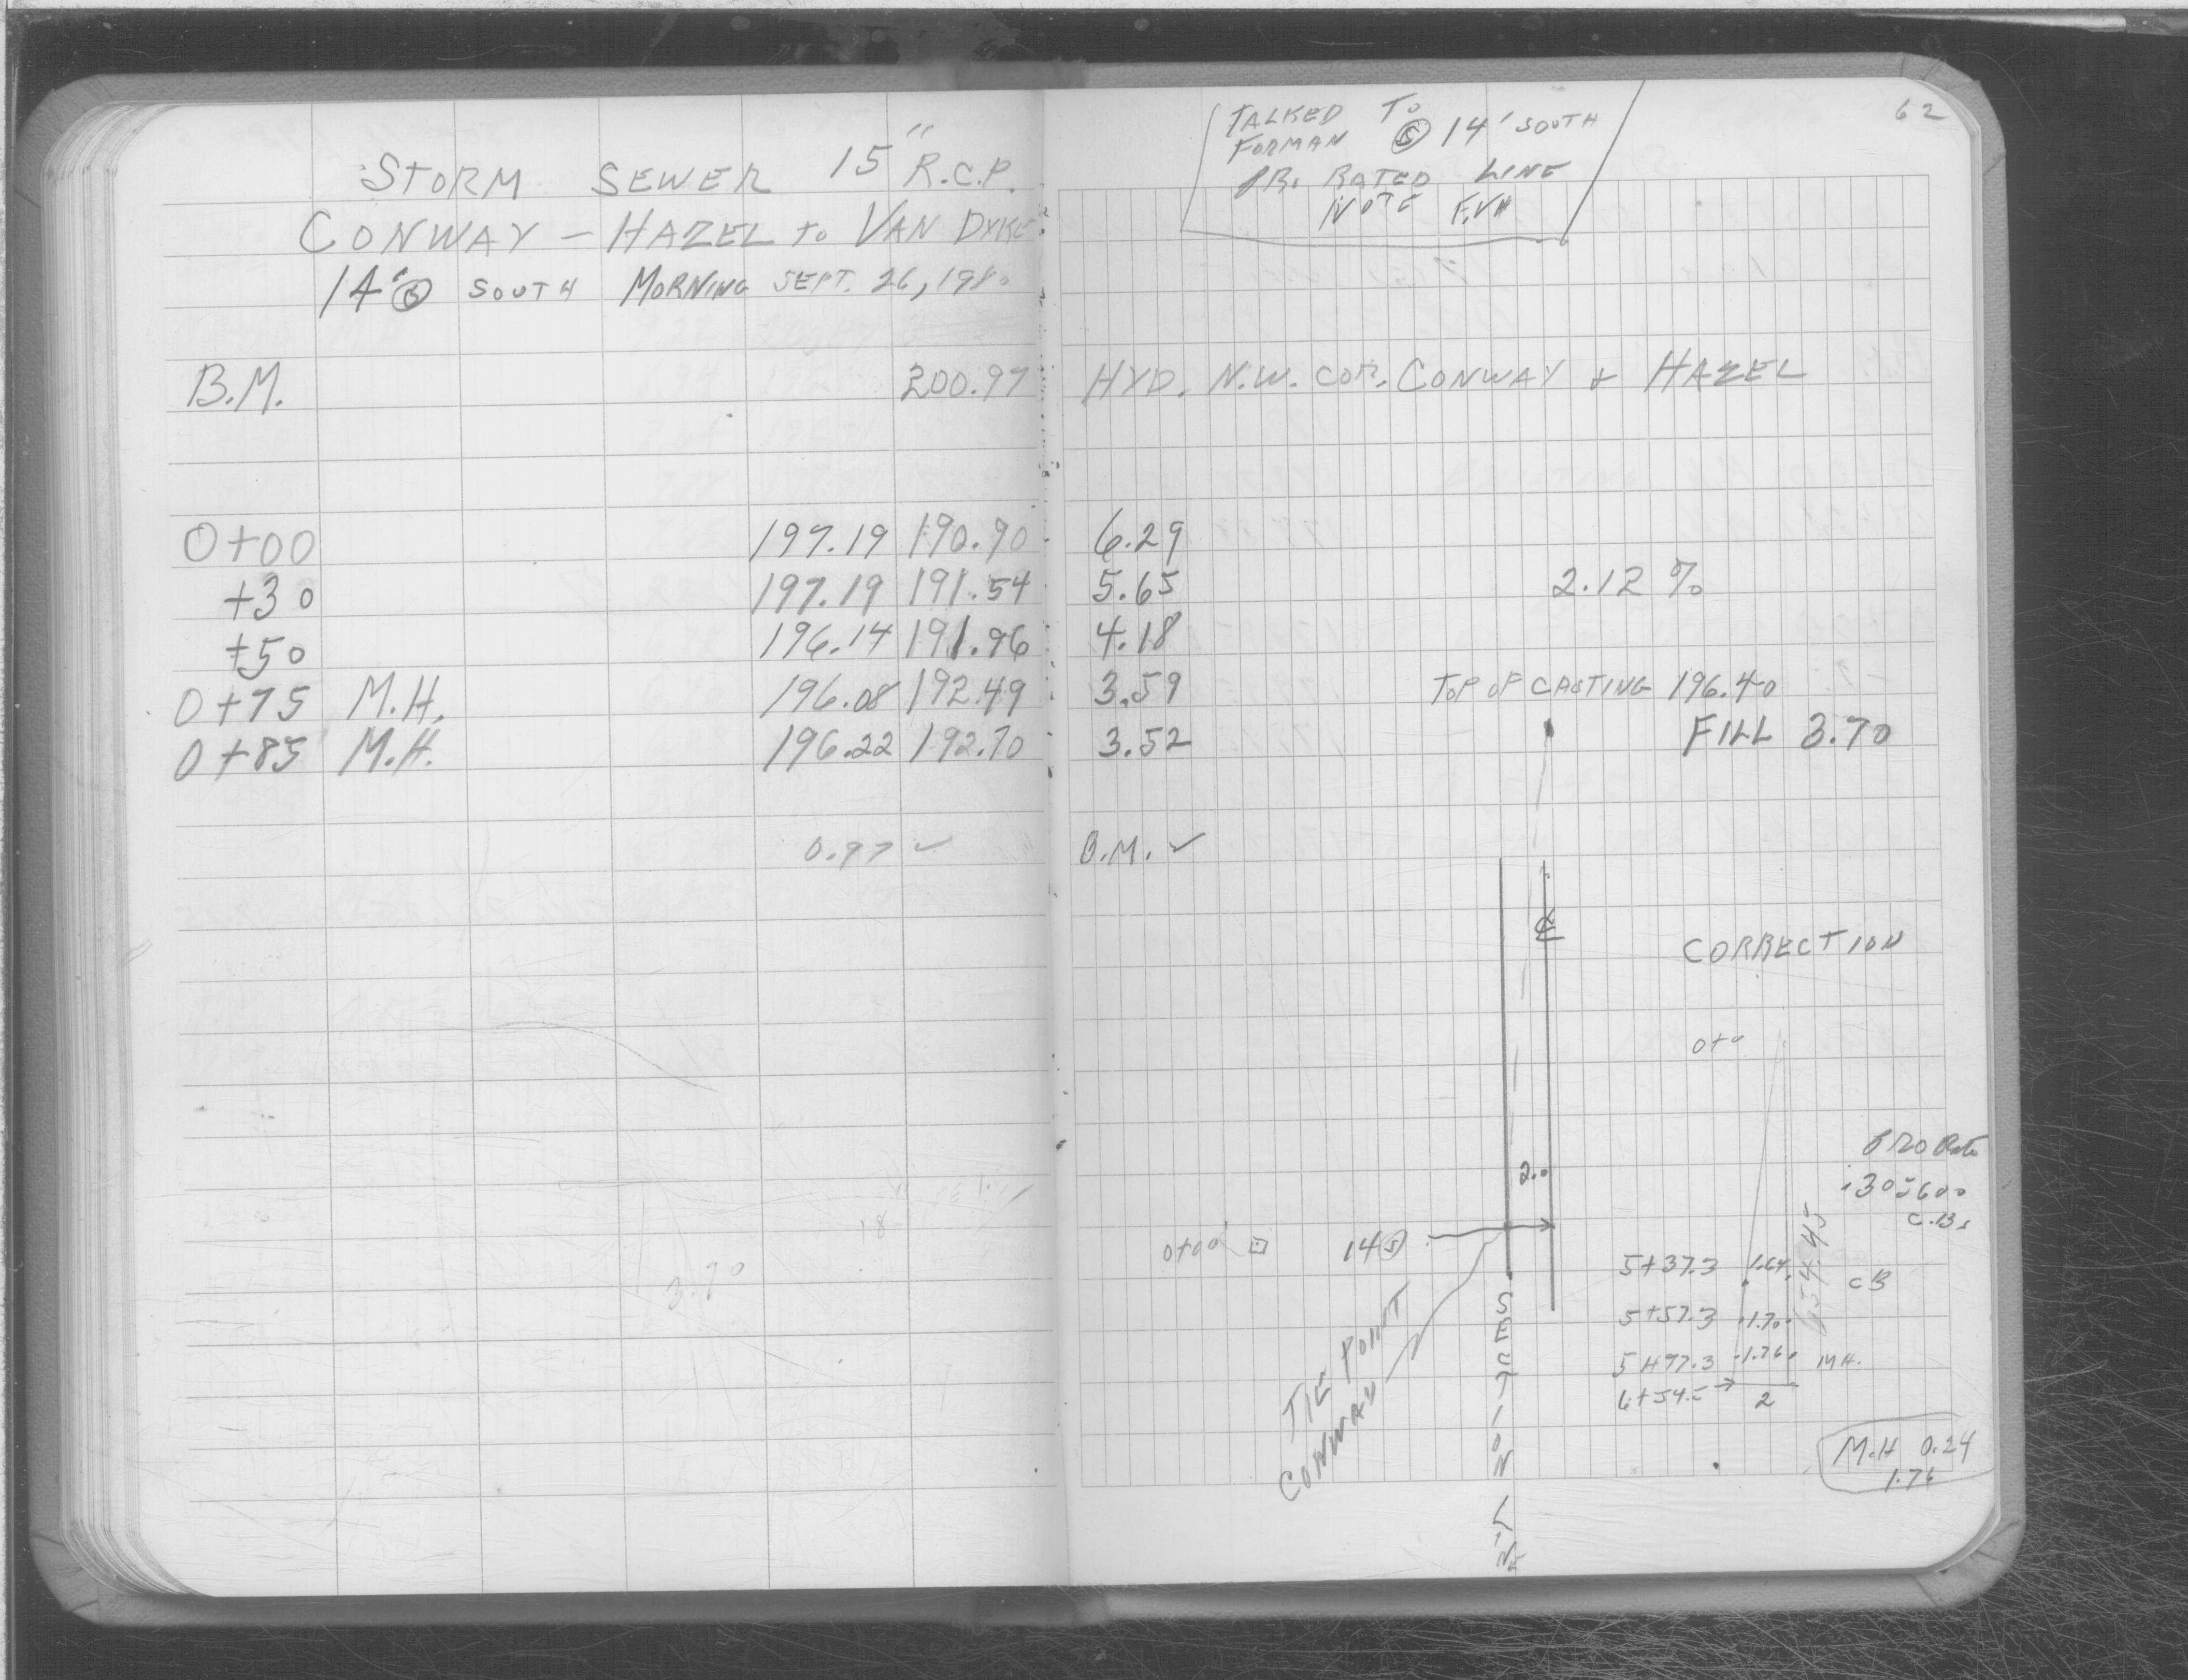 STORM SEWER 15" R.C.P.
CONWAY – HAZEL to VAN DYKE
14' Ⓢ SOUTH MORNING SEPT. 26, 1980
B.M. 200.97
0+00 197.19 190.90
+30 197.19 191.54
+50 196.14 191.96
0+75 M.H. 196.08 192.49
0+85 M.H. 196.22 192.70
0.97 ✓
18
3.70
62
TALKED To
FORMAN Ⓢ 14' SOUTH
PR. RATED LINE
NOTE
HYD. N.W. COR. CONWAY & HAZEL
6.29
5.65 2.12 %
4.18
3.59 TOP OF CASTING 196.40
3.52 FILL 3.70
B.M. ✓
℄
CORRECTION
0+0
PRO Rate
C.B.
2.0
0+00 ⊡ 14 Ⓢ
TIE POINT
CONWAY
SECTION LINE
654.45
5+37.3 1.64 CB
5+57.3 1.70
5+97.3 1.76 MH.
6+54.5 → 2
M.H 0.24
1.76